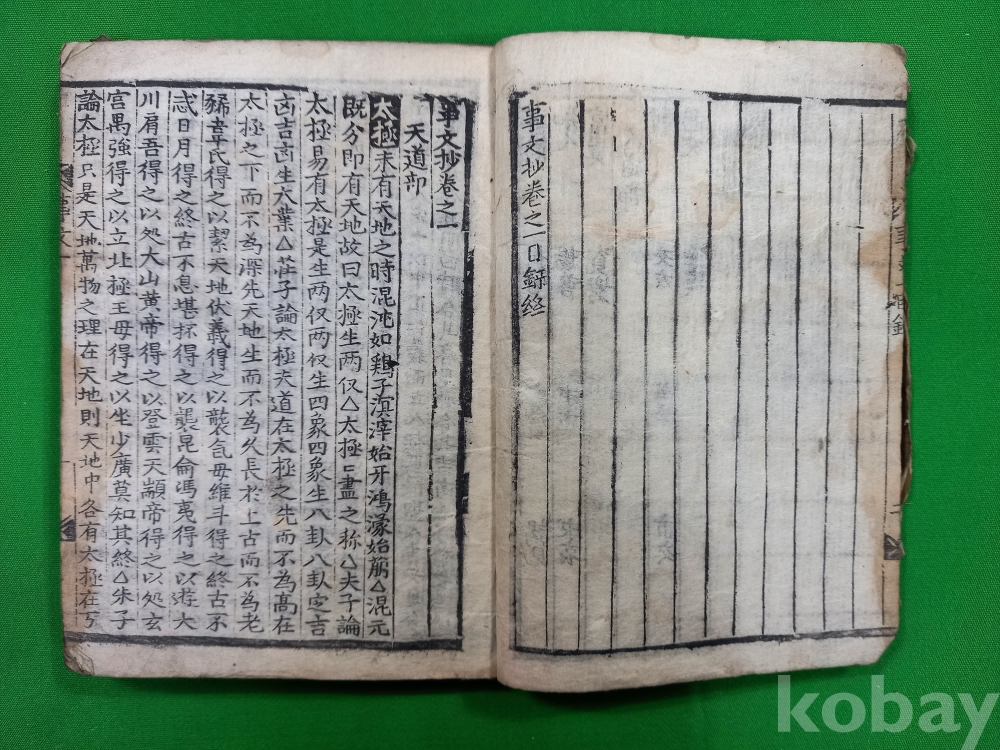 事文抄卷之一目錄終
事文抄卷之一
天道部
太極未有天地之時混沌如鷄子溟滓始牙鴻濛始萠△混元
既分即有天地故曰太極生两仪△太極亡盡之称△夫子論
太極易有太極是生两仪两仪生四象四象生八卦八卦定吉
凶吉凶生大業△莊子論太極夫道在太極之先而不為高在
太極之下而不為深先天地生而不為久長於上古而不為老
豨韋氏得之以絜天地伏羲得之以襲気母維斗得之終古不
忒日月得之終古不息堪抔得之以襲昆侖馮夷得之以遊大
川肩吾得之以処大山黄帝得之以登雲天顓帝得之以処玄
宮禺強得之以立北極王母得之以坐少廣莫知其終△朱子
論太極只是天地萬物之理在天地則天地中各有太極在万
kobay